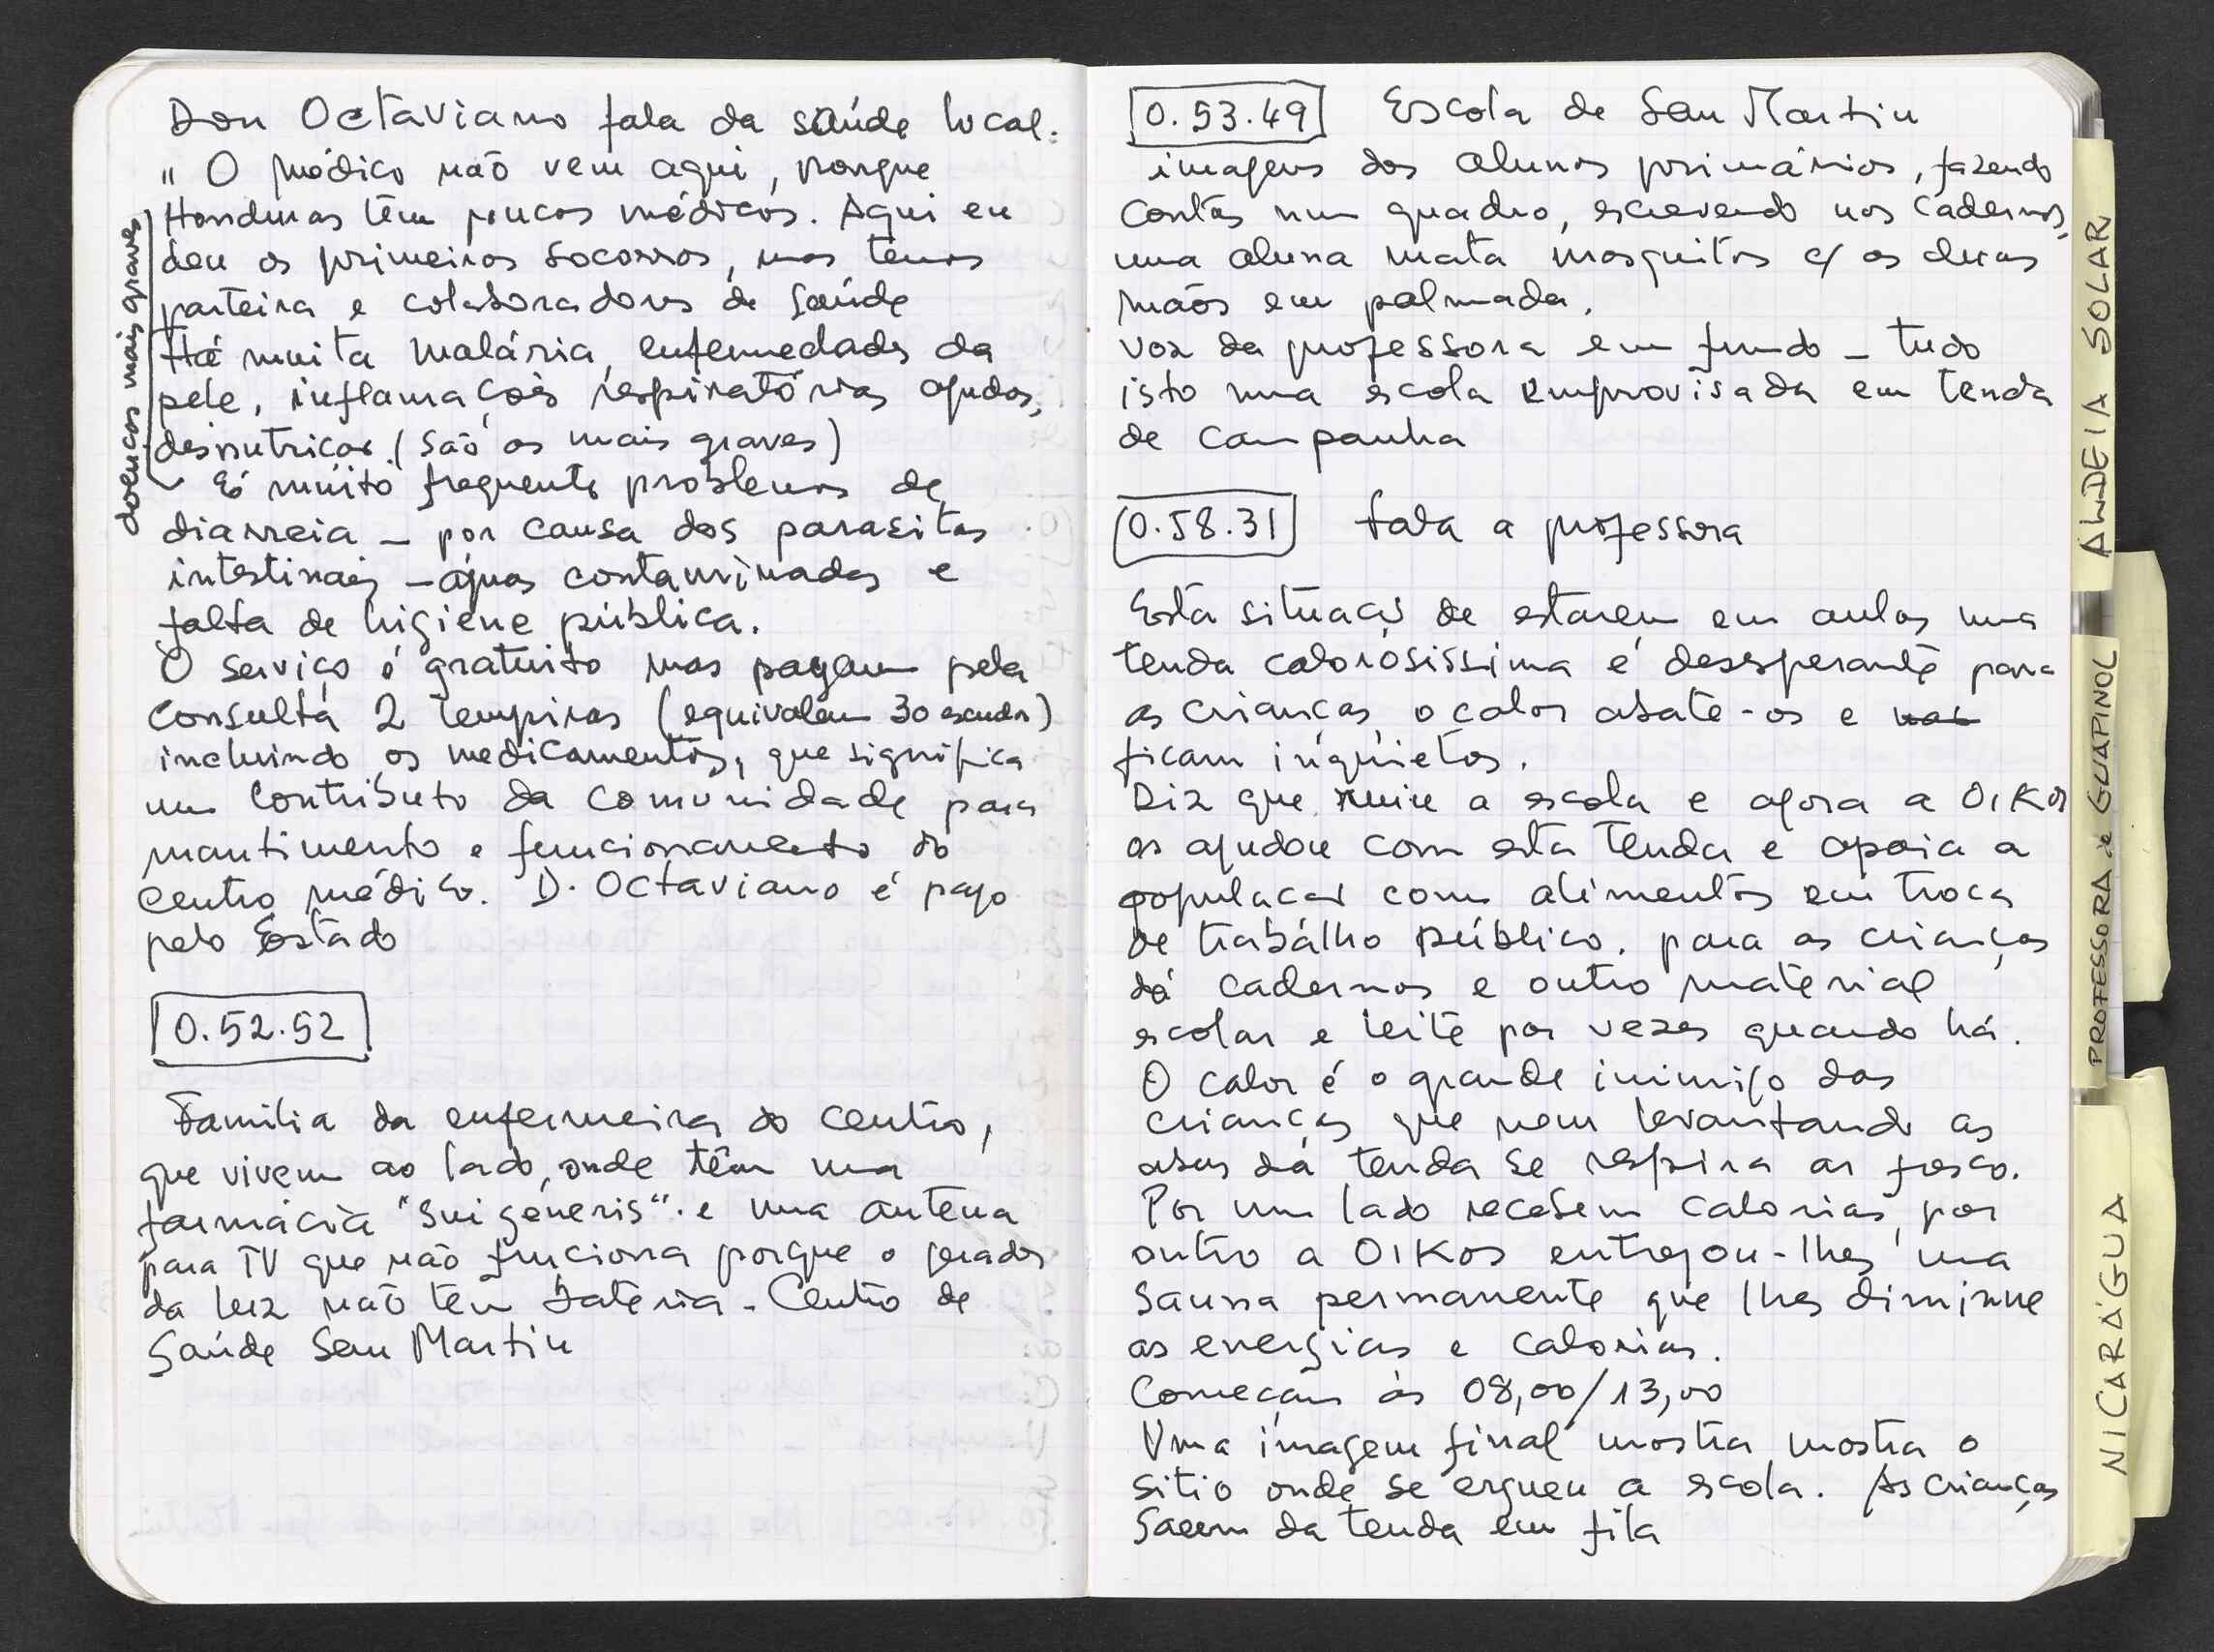 Don Octaviano fala da saúde local:
" O médico não vem aqui, porque
Honduras têm poucos médicos. Aqui eu
dou os primeiros socorros, mas temos
parteira e colaboradores de saúde
Há muita malária, enfermedades da
pele, inflamações respiratórias agudas,
desnutricar. (são as mais graves)
É muito frequente problemas de
diarreia – por causa dos parasitas
intestinais – águas contaminadas e
falta de higiene pública.
O serviço é gratuito mas pagam pela
consulta 2 lempiras (equivalem 30 escudos)
incluindo os medicamentos, que significa
um contributo da comunidade para
mantimento e funcionamento do
centro médico. D. Octaviano é pago
pelo Estado
doenças mais graves
0.52.52
Familia da enfermeira do centro,
que vivem ao lado, onde têm uma
farmácia "sui géneris" e uma antena
para TV que não funciona porque o gerador
da luz não tem bateria – Centro de
Saúde San Martin
0.53.49 Escola de San Martin
imagens dos alunos primários, fazendo
contas num quadro, escrevendo nos cadernos,
uma aluna mata mosquitos c/ as duas
mãos em palmada.
voz da professora em fundo – tudo
isto numa escola improvisada em tenda
de campanha
0.58.31 fala a professora
Esta situação de estarem em aulas numa
tenda calorosissima é desesperante para
as crianças, o calor abate-os e
ficam inquietos.
Diz que ruiu a escola e agora a OIKOS
os ajudou com esta tenda e apoia a
população com alimentos em troca
de trabalho público. para as crianças
dá cadernos e outro material
escolar e leite por vezes quando há.
O calor é o grande inimigo das
crianças que nem levantando as
abas da tenda se respira ar fresco.
Por um lado recebem calorias, por
outro a OIKOS entregou-lhes uma
sauna permanente que lhes diminue
as energias e calorias.
Começam às 08,00/13,00
Uma imagem final mostra mostra o
sitio onde se ergueu a escola. As crianças
saem da tenda em fila
ALDEIA SOLAR
PROFESSORA de GUAPINOL
NICARÁGUA